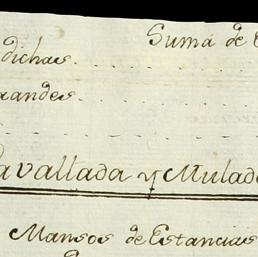 Suma de
dichas
randes
avallada y Mulad
Mansos de Estancias